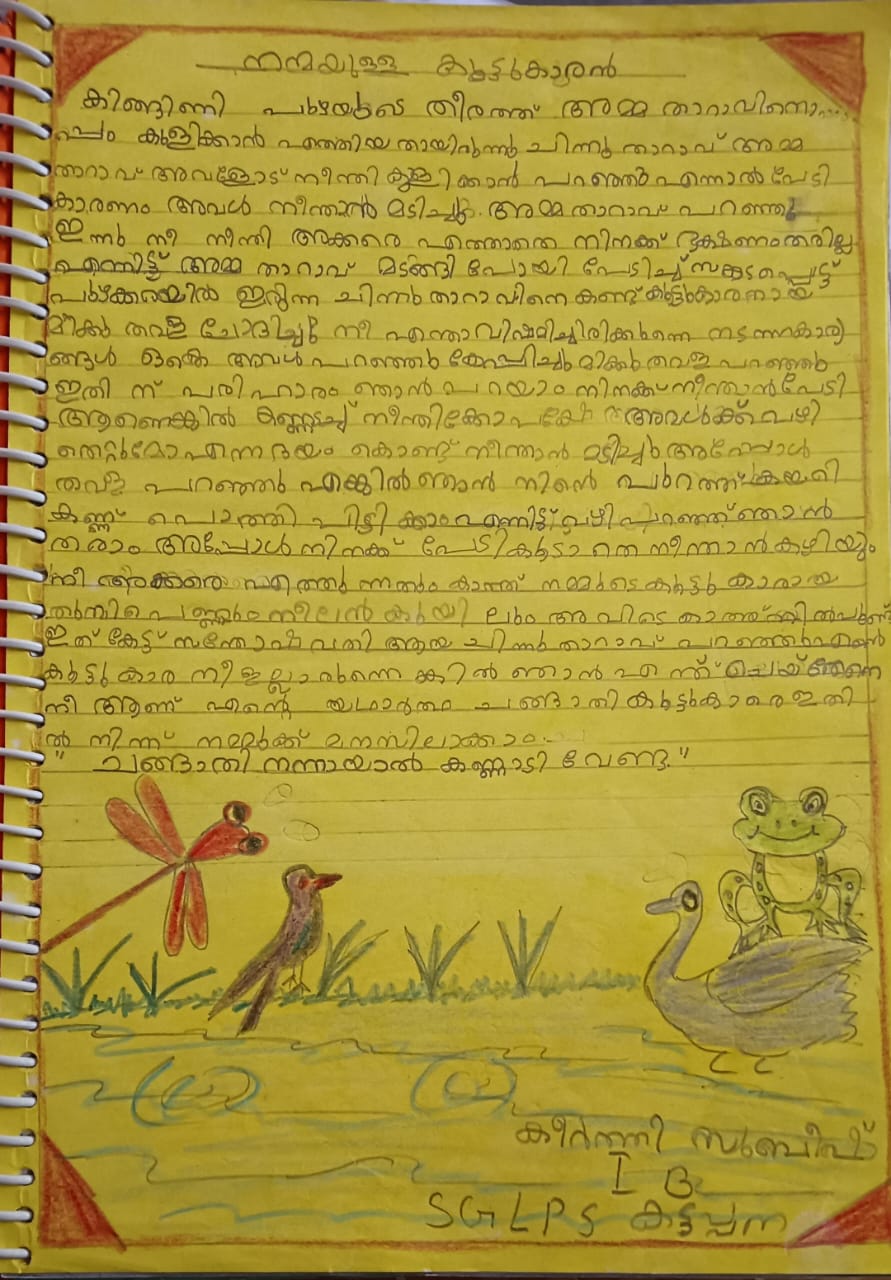 നന്മയുള്ള കൂട്ടുകാരൻ
കിങ്ങിണി പുഴയുടെ തീരത്ത് അമ്മ താറാവിനൊ....
പ്പം കുളിക്കാൻ എത്തിയ തായിരുന്നു ചിന്നു താറാവ് അമ്മ
താറാവ് അവളോട് നീന്തി കുളിക്കാൻ പറഞ്ഞു എന്നാൽ പേടി
കാരണം അവൾ നീന്താൻ മടിച്ചു. അമ്മ താറാവ് പറഞ്ഞു
ഇന്നു നീ നീന്തി അക്കരെ എത്താതെ നിനക്ക് ഭക്ഷണം തരില്ല
എന്നിട്ട് അമ്മ താറാവ് മടങ്ങി പോയി പേടിച്ച് സങ്കടപ്പെട്ട്
പുഴക്കരയിൽ ഇരുന്ന ചിന്നു താറാവിനെ കണ്ട് കൂട്ടുകാരനായ
മിക്കു തവള ചോദിച്ചു നീ എന്താ വിഷമിച്ചിരിക്കുന്നെ നടന്നകാര്യ
ങ്ങൾ ഒക്കെ അവൾ പറഞ്ഞു കേൾപ്പിച്ചു മിക്കു തവള പറഞ്ഞു
ഇതി ന് പരിഹാരം ഞാൻ പറയാം നിനക്ക് നീന്താൻ പേടി
ആണെങ്കിൽ കണ്ണടച്ച് നീന്തിക്കോ പക്ഷേ അവൾക്ക് വഴി
തെറ്റുമോ എന്ന ഭയം കൊണ്ട് നീന്താൻ മടിച്ചു അപ്പോൾ
തവള പറഞ്ഞു എങ്കിൽ ഞാൻ നിൻെ പുറത്ത് കയറി
കണ്ണ് പൊത്തി പിടി ക്കാം എന്നിട്ട് വഴി പറഞ്ഞ് ഞാൻ
തരാം അപ്പോൾ നിനക്ക് പേടികൂടാ തെ നീന്താൻ കഴിയും
നീ അക്കരെ എത്തു ന്നതും കാത്ത് നമ്മുടെ കൂട്ടു കാരായ
തുമ്പിപെണ്ണും നീലൻ കുയി ലും അവിടെ കാത്ത്
ഇത് കേട്ട് സന്തോഷ വതി ആയ ചിന്നു താറാവ് പറഞ്ഞു എൻെ
കൂട്ടു കാര നീ ഇല്ലാ രുന്നെ ങ്കിൽ ഞാൻ എ ന്ത് ചെയ്തേനെ
നീ ആണ് എൻ്റെ യഥാർത്ഥ ചങ്ങാതി കൂട്ടുകാരെ ഇതി
ൽ നിന്ന് നമുക്ക് മനസിലാക്കാം.
" ചങ്ങാതി നന്നായാൽ കണ്ണാടി വേണ്ട."
കീർത്തി സുബീഷ്
I B
SGLPS കട്ടപ്പന